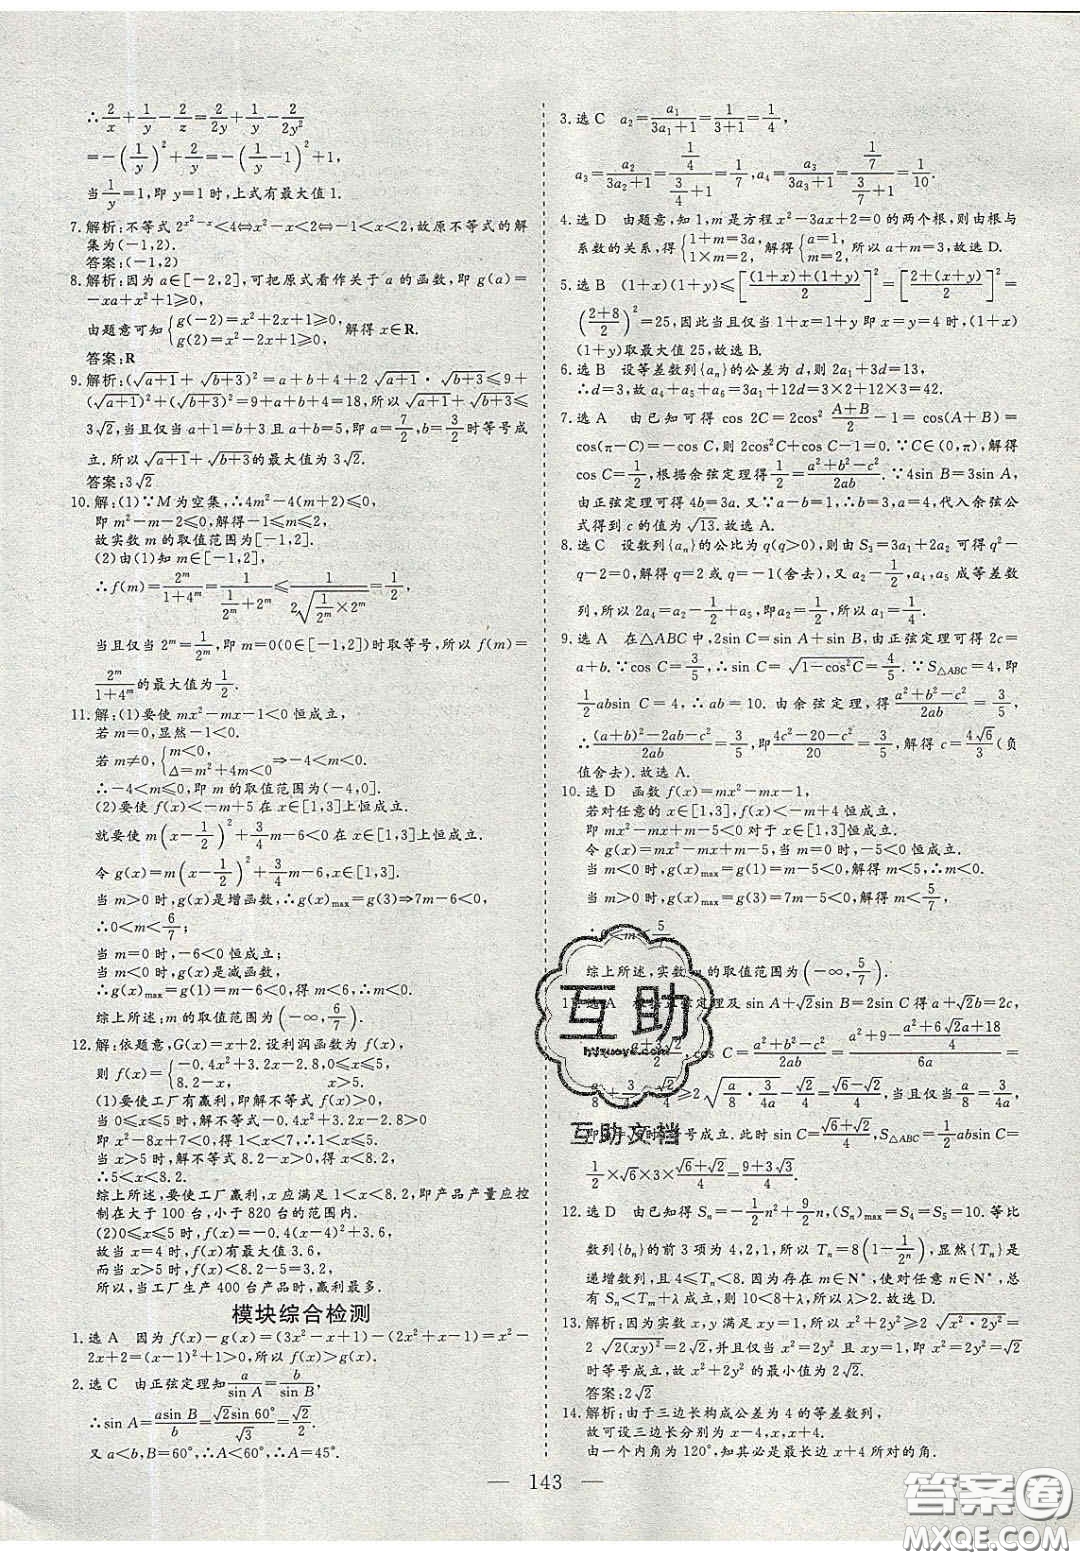 ∴2/x+1/y-2/z=2/2y+1/y-2/2y²
=-(1/y)²+2/y=-(1/y-1)²+1,
当1/y=1,即 y=1 时,上式有最大值 1.
7.解析:不等式 2^(x²-x)<4⇔x²-x<2⇔-1<x<2,故原不等式的解
集为(-1,2).
答案:(-1,2)
8.解析:因为 a∈[-2,2],可把原式看作关于 a 的函数,即 g(a)=
-xa+x²+1≥0,
由题意可知{g(-2)=x²+2x+1≥0, g(2)=x²-2x+1≥0, 解得 x∈R.
答案:R
9.解析:(√(a+1)+√(b+3))²=a+b+4+2√(a+1)·√(b+3)≤9+
(√(a+1))²+(√(b+3))²=9+a+b+4=18,所以√(a+1)+√(b+3)≤
3√2,当且仅当 a+1=b+3 且 a+b=5,即 a=7/2,b=3/2时等号成
立.所以√(a+1)+√(b+3)的最大值为 3√2.
答案:3√2
10.解:(1)∵M 为空集,∴4m²-4(m+2)≤0,
即 m²-m-2≤0,解得-1≤m≤2.
故实数 m 的取值范围为[-1,2].
(2)由(1)知 m∈[-1,2],
∴f(m)=2^m/(1+4^m)=1/(1/2^m+2^m)≤1/(2√(1/2^m×2^m))=1/2,
当且仅当 2^m=1/2^m,即 m=0(0∈[-1,2])时取等号,所以 f(m)=
2^m/(1+4^m)的最大值为1/2.
11.解:(1)要使 mx²-mx-1<0 恒成立,
若 m=0,显然-1<0.
若 m≠0,{m<0, Δ=m²+4m<0⇒-4<m<0.
∴-4<m≤0,即 m 的取值范围为(-4,0].
(2)要使 f(x)<-m+5 在 x∈[1,3]恒成立.
就要使 m(x-1/2)²+3/4m-6<0 在 x∈[1,3]上恒成立.
令 g(x)=m(x-1/2)²+3/4m-6,x∈[1,3].
当 m>0 时,g(x)是增函数,∴g(x)max=g(3)⇒7m-6<0,
∴0<m<6/7;
当 m=0 时,-6<0 恒成立;
当 m<0 时,g(x)是减函数,
∴g(x)max=g(1)=m-6<0,得 m<6,∴m<0.
综上所述:m 的取值范围为(-∞,6/7).
12.解:依题意,G(x)=x+2.设利润函数为 f(x),
则 f(x)={-0.4x²+3.2x-2.8,0≤x≤5, 8.2-x, x>5.
(1)要使工厂有赢利,即解不等式 f(x)>0,
当 0≤x≤5 时,解不等式-0.4x²+3.2x-2.8>0
即 x²-8x+7<0,得 1<x<7,∴1<x≤5.
当 x>5 时,解不等式 8.2-x>0,得 x<8.2,
∴5<x<8.2.
综上所述,要使工厂赢利,x 应满足 1<x<8.2,即产品产量应控
制在大于 100 台,小于 820 台的范围内.
(2)0≤x≤5 时,f(x)=-0.4(x-4)²+3.6,
故当 x=4 时,f(x)有最大值 3.6,
而当 x>5 时,f(x)<8.2-5=3.2,
所以,当工厂生产 400 台产品时,赢利最多.
模块综合检测
1.选 A 因为 f(x)-g(x)=(3x²-x+1)-(2x²+x-1)=x²-
2x+2=(x-1)²+1>0,所以 f(x)>g(x).
2.选 C 由正弦定理知a/sin A=b/sin B,
∴sin A=asin B/b=√2sin 60°/√3=√2/2.
又 a<b,B=60°,∴A<60°,∴A=45°.
3.选 C a₂=a₁/(3a₁+1)=1/(3+1)=1/4,
a₃=a₂/(3a₂+1)=(1/4)/(3/4+1)=1/7,a₄=a₃/(3a₃+1)=(1/7)/(3/7+1)=1/10.
4.选 D 由题意,知 1,m 是方程 x²-3ax+2=0 的两个根,则由根与
系数的关系,得{1+m=3a, 1×m=2, 解得{a=1, m=2, 所以 a+m=3,故选 D.
5.选 B (1+x)(1+y)≤[((1+x)+(1+y))/2]²=[(2+(x+y))/2]²=
((2+8)/2)²=25,因此当且仅当 1+x=1+y 即 x=y=4 时,(1+x)
(1+y)取最大值 25,故选 B.
6.选 B 设等差数列{aₙ}的公差为 d,则 2a₁+3d=13,
∴d=3,故 a₄+a₅+a₆=3a₁+12d=3×2+12×3=42.
7.选 A 由已知可得 cos 2C=2cos²(A+B)/2-1=cos(A+B)=
cos(π-C)=-cos C,则 2cos²C+cos C-1=0.∵C∈(0,π),解得
cos C=1/2,根据余弦定理得1/2=(a²+b²-c²)/2ab.∵4sin B=3sin A,
由正弦定理可得 4b=3a.又∵a-b=1,∴b=3,a=4,代入余弦公
式得到 c 的值为√13.故选 A.
8.选 C 设数列{aₙ}的公比为 q(q>0),则由 S₃=3a₁+2a₂可得 q²-
q-2=0,解得 q=2 或 q=-1(舍去),又 a₄-1/2,a₄,a₅成等差数
列,所以 2a₄=a₄-1/2+a₅,即8a₁=16a₁-1/2,所以 a₁=1/16.
9.选 A 在△ABC 中,2sin C=sin A+sin B,由正弦定理可得 2c=
a+b.∵cos C=3/5,∴sin C=√(1-cos²C)=4/5.∵S△ABC=4,即
1/2absin C=4,∴ab=10.由余弦定理,得(a²+b²-c²)/2ab=3/5,
∴((a+b)²-2ab-c²)/2ab=3/5,即(4c²-20-c²)/20=3/5,解得 c=4√6/3(负
值舍去).故选 A.
10.选 D 函数 f(x)=mx²-mx-1,
若对任意的 x∈[1,3],f(x)<-m+4 恒成立,
即 mx²-mx+m-5<0 对于 x∈[1,3]恒成立.
令 g(x)=mx²-mx+m-5,当 m=0 时,-5<0 恒成立.
当 m<0 时,g(x)max=g(1)=m-5<0,解得 m<5,∴m<0;
当 m>0 时,g(x)max=g(3)=7m-5<0,解得 m<5/7,
∴0<m<5/7.
综上所述,实数 m 的取值范围为(-∞,5/7).
11.选 A 根据正弦定理及 sin A+√2sin B=2sin C得 a+√2b=2c,
(a+3√2)/2,cos C=(a²+b²-c²)/2ab=(a²+9-(a²+6√2a+18)/4)/6a=
a/8+3/4a-√2/4≥2√(a/8·3/4a)-√2/4=(√6-√2)/4,当且仅当a/8=3/4a,
即a=√6时等号成立.此时 sin C=(√6+√2)/4,S△ABC=1/2absin C=
1/2×√6×3×(√6+√2)/4=(9+3√3)/4.
12.选 D 由已知得 Sₙ=-1/2n²+9/2n,(Sₙ)max=S₄=S₅=10.等比
数列{bₙ}的前 3 项为 4,2,1,所以 Tₙ=8(1-1/2ⁿ),显然{Tₙ}是
递增数列,且 4≤Tₙ<8.因为存在 m∈N*,使对任意 n∈N*,
总有 Sₙ<Tm+λ 成立,则 10<8+λ,λ>2.故选 D.
13.解析:因为实数 x,y 满足 xy=1,所以 x²+2y²≥2√(x²·2y²)=
2√(2(xy)²)=2√2,并且仅当 x²=2y² 且 xy=1,即 x²=2y²=√2
时等号成立,故 x²+2y² 的最小值为 2√2.
答案:2√2
14.解析:由于三边长构成公差为 4 的等差数列,
故可设三边长分别为 x-4,x,x+4.
由一个内角为 120°,知其必是最长边 x+4 所对的角.
143
互助
互助文档
答案圈
MXQE.COM